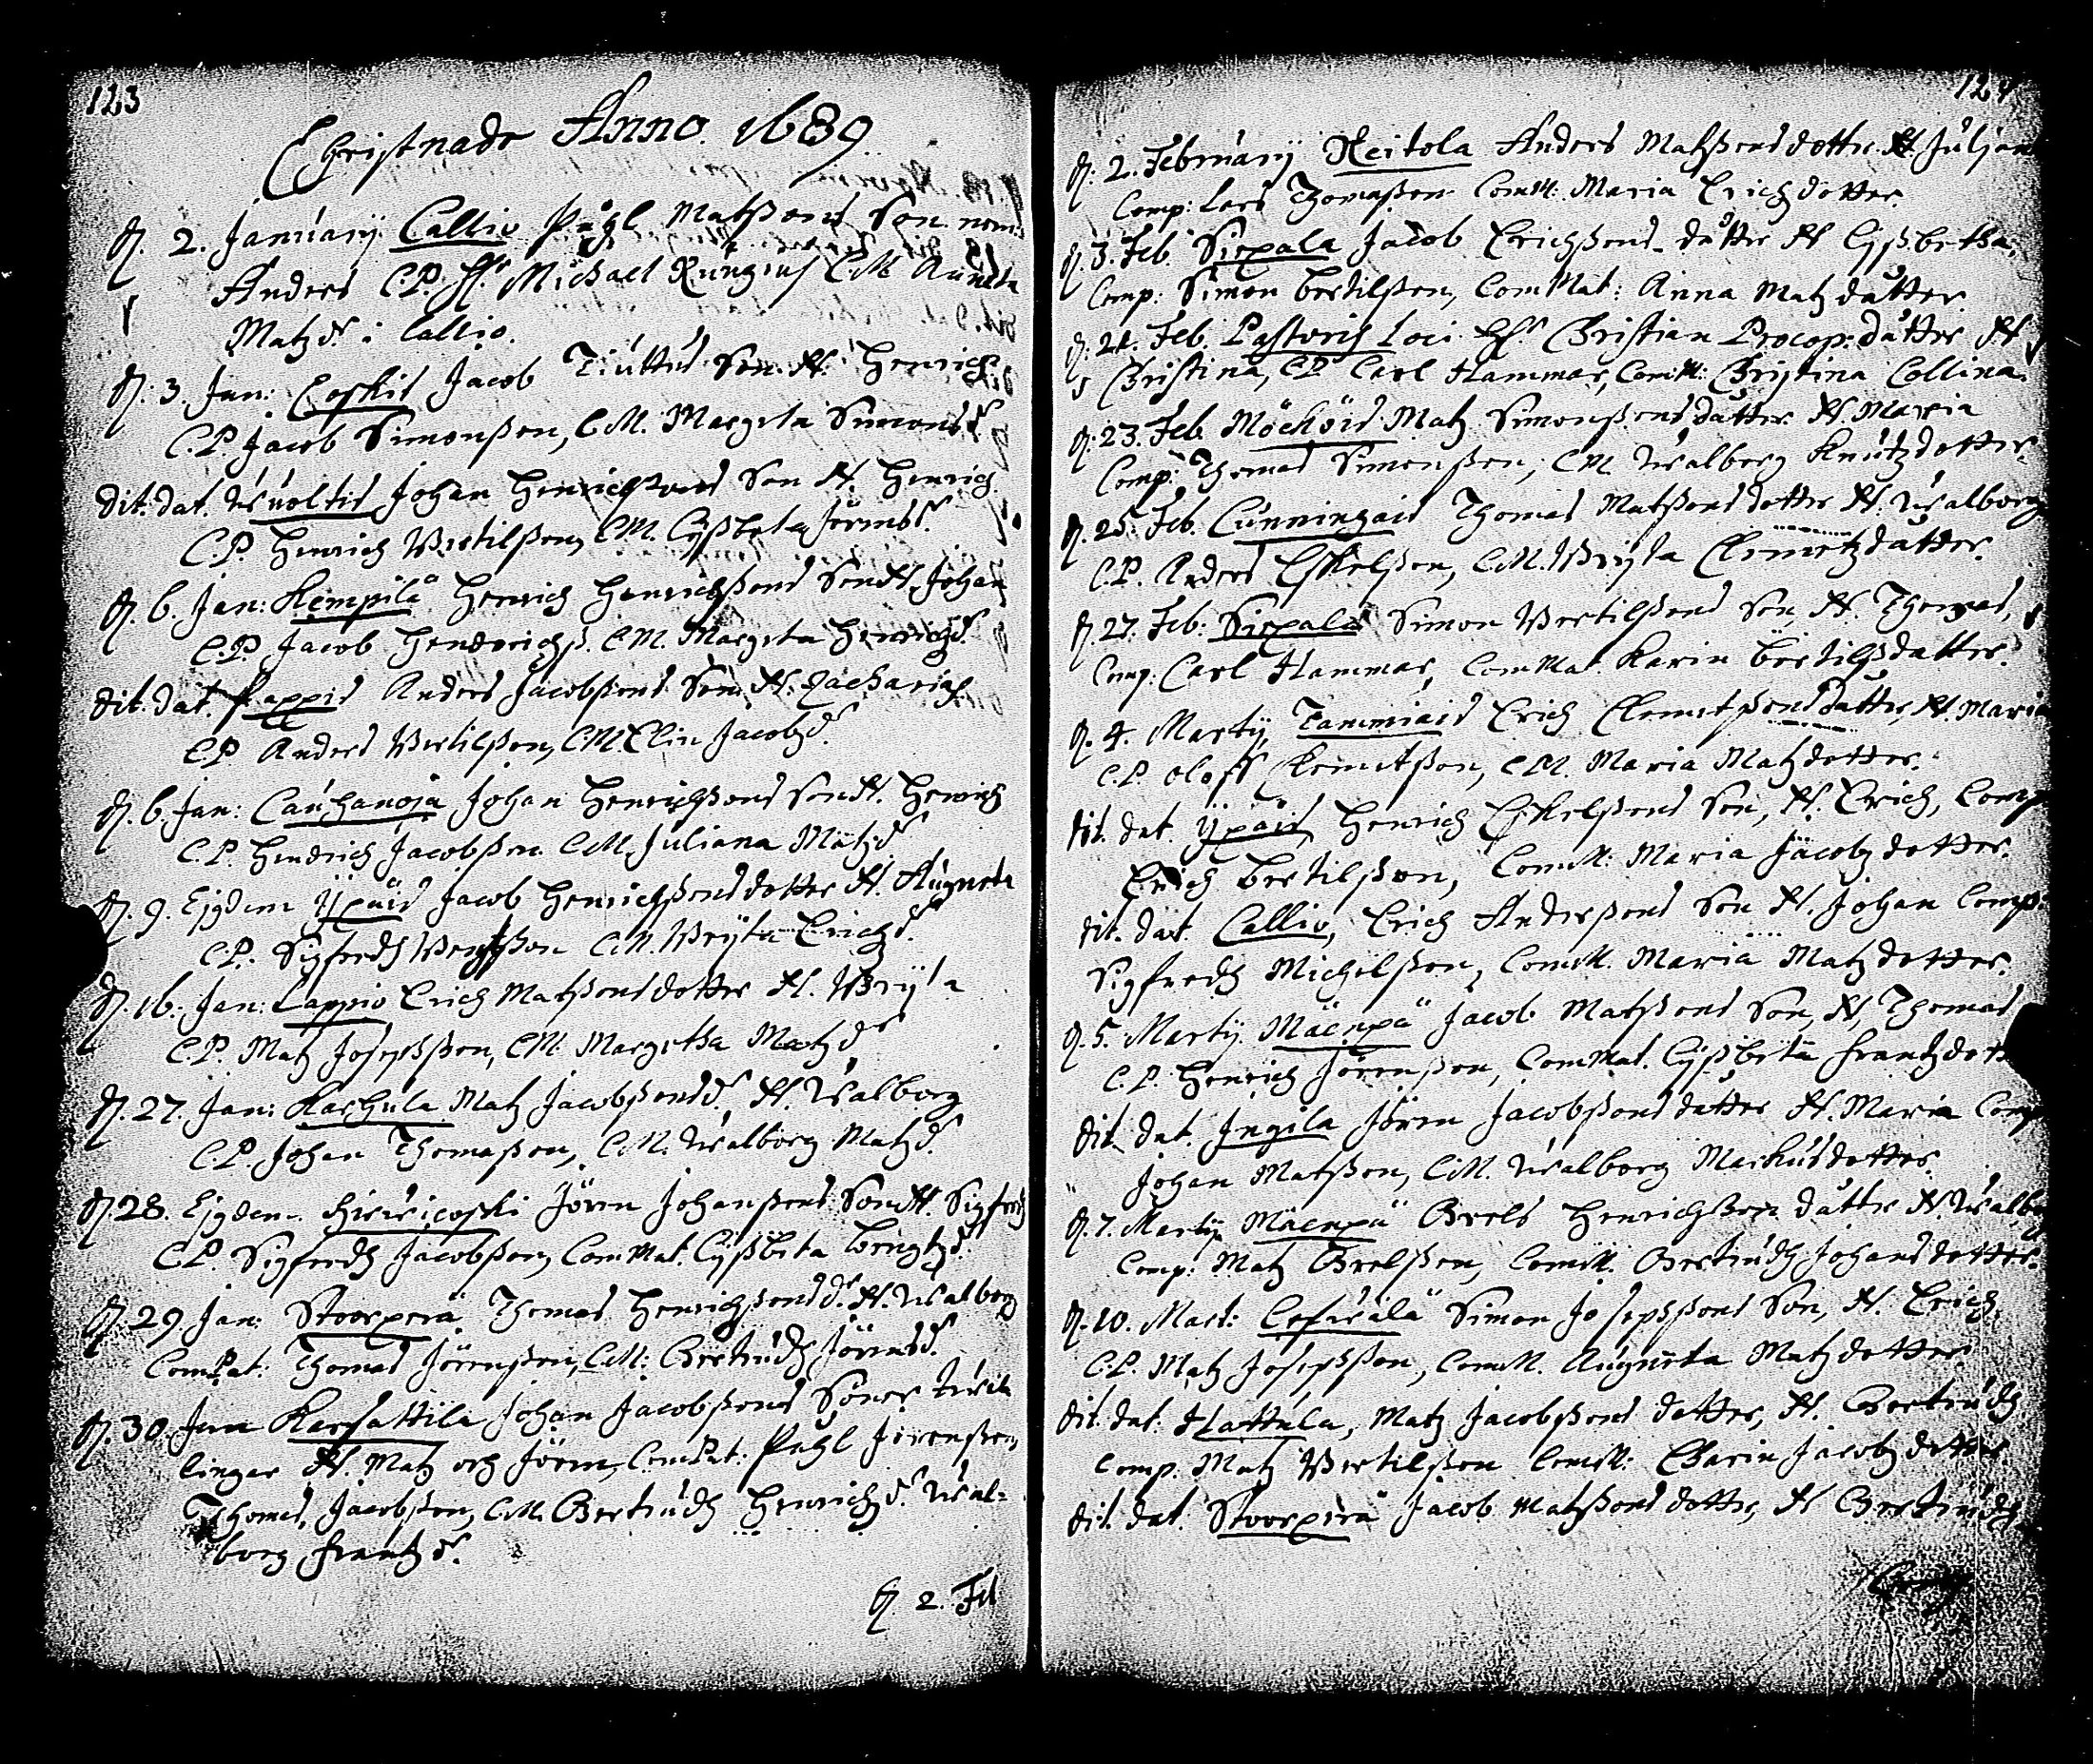 123
Christnade Anno 1689
D. 2. Januarij Callio Påhl Matzsons Son nom:
Anders C.P. H. Michael Rungius C.M. Agneta
Matzdr i Callio.
D. 3. Jan: Coskis Jacob Tiuttus Son N. Henrich
C.P. Jacob Simonßon, C.M. Margeta Simonsdr
Dit. dat. Wuoltis Johan Henrichßons Son N. Henrich
C.P. Henrich Bertilßon, C.M. Lijßbeta Jörensdr.
D. 6. Jan: Kempilä Henrich Henrichßons Son N. Johan
C.P. Jacob Henderichß. C.M. Margeta Henrichdr
Dit. dat. Pappis Anders Jacobßons Son N. Zacharias
C.P. Anders Bertilßon, C.M. Elin Jacobzdr.
D. 6. Jan: Cauhanoja Johan Henrichßons Son N. Henrich
C.P. Hendrich Jacobßon. C.M. Juliana Matzdr
D. 9. Ejgdem Ypäis Jacob Henrichßons dotter N. Augneta
C.P. Sigfredh Bengßon C.M. Brijta Erichzdr.
D. 16. Jan: Lappio Erich Matßons dotter N. Brijta
C.P. Matz Josephßon, C.M. Margetha Matzdr
D. 27. Jan: Karhula Matz Jacobßons dr. N. Walborg
C.P. Johan Thomaßon, C.M. Walborg Matzdr
D. 28. Ejgdem. Hirwicoski Jören Johanßons Son N. Sigfredh
C.P. Sigfredh Jacobßon, ComMat. Lijßbeta Bengtzdr.
D. 29. Jan: Stoorperä Thomas Henrichßons dr. N. Walborg
ComPat: Thomas Jörenßon, C.M: Gertrudh Jörensdr.
D. 30. Jan Karsattila Johan Jacobßons Söner twil
lingar N. Matz och Jören, ComPat: Påhl Jörenßon,
Thomas Jacobßon, C.M. Gertrudh Henrichdr. Wal=
borg Frantzdr.
D. 2. Feb
124
D. 2. Februarij Keitola Anders Matzßons dotter N. Juljan
Comp: Lars Thomaßon ComM: Maria Erichdotter.
D. 3. Feb. Sirpala Jacob Erichßons dotter N Lijßbetha,
Comp: Simon Bertilßon, ComMat: Anna Matzdotter
D. 21. Feb. Pastoris Loci H. Christian Procop: dotter N
Christina, C.P Carl Hammar, ComM: Christina Collina.
D. 23. Feb. Möcköis Matz Simonßons dotter N Maria
Comp: Thomas Simonßon, C.M. Walborg Knutzdotter.
D. 25. Feb. Cunningais Thomas Matßons dotter N. Walborg
C.P. Anders Eskelßon, C.M. Brijta Clemetzdotter.
D. 27. Feb: Sirpala Simon Bertilßons Son N. Thomas,
Comp: Carl Hammar, ComMat. Karin Bertilßdotter.
D. 4. Martij, Tammiais Erich Clemetßons dotter, N. Maria
C.P. Oloff Clemetßon, C.M. Maria Matzdotter.
Dit. dat. Ypäis, Henrich Eskelßons Son, N. Erich, Comp
Erich Bertilßon, ComM: Maria Jacobzdotter.
Dit. dat. Callio, Erich Anderßons Son N. Johan Comp:
Sigfredh Michelßon, ComM. Maria Matzdotter.
D. 5. Martij. Mäenpä Jacob Matßons Son, N. Thomas
C.P. Henrich Jörenßon, ComMat. Lijßbeta Frantzdott
Dit. dat. Ingila Jören Jacobßons dotter N. Maria Comp
Johan Matßon, C.M. Walborg Markusdotter.
D. 7. Martij. Mäenpä Grels Henrichßon dotter N. Walb
Comp: Matz Grelßon, ComM. Gertrudh Johansdotter.
D. 10. Mart: Lefwälä Simon Josephßons Son, N. Erich
C.P. Matz Josephßon, ComM. Augneta Matzdotter
Dit. dat. Hattula, Matz Jacobßons dotter, N. Gertrudh
Comp. Matz Bertilßon ComM: Charin Jacobzdotter
Dit. dat. Stoorperä Jacob Matßons dotter, N Gertrudh
Comp